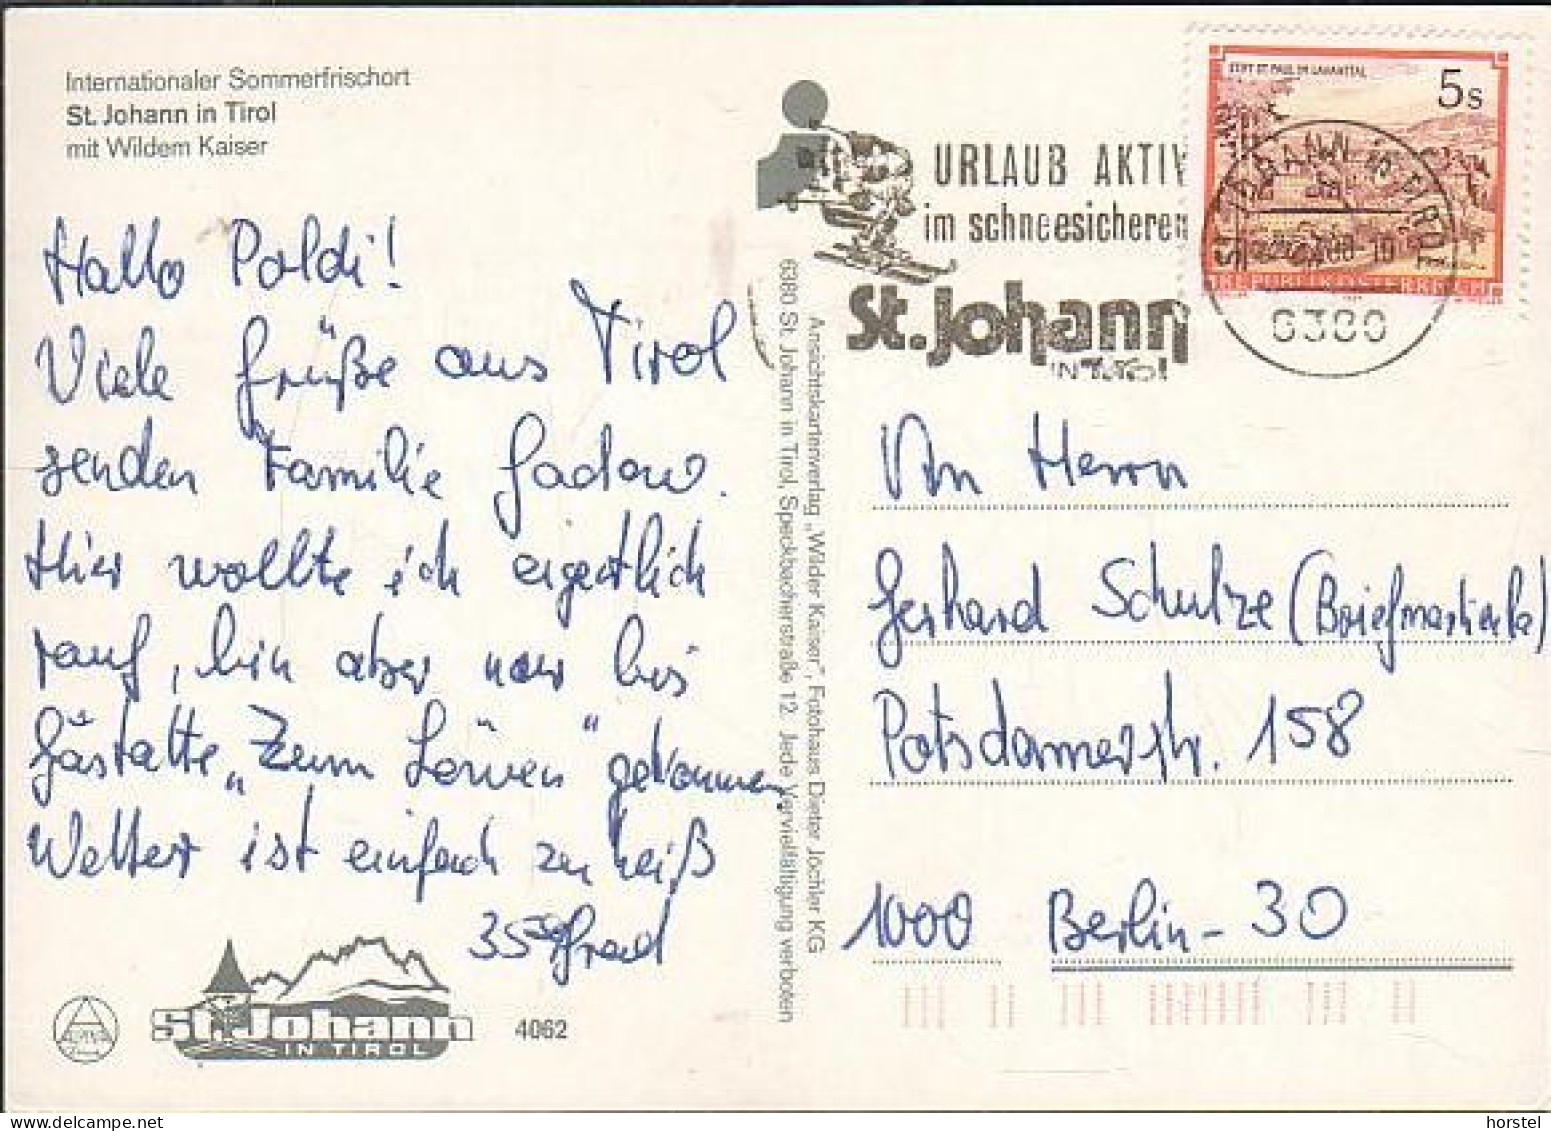 Internationaler Sommerfrischort
St. Johann in Tirol
mit Wildem Kaiser
Hallo Poldi!
Viele Grüße aus Tirol
senden Familie Gadow.
Hier wollte ich eigentlich
rauf, bin aber nur bis
Gaststätte „Zum Löwen“ gekommen,
Wetter ist einfach zu heiß
35 Grad
St. Johann
IN TIROL
4062
Ansichtskartenverlag „Wilder Kaiser“, Fotohaus Dieter Jöchler KG
6380 St. Johann in Tirol, Speckbacherstraße 12. Jede Vervielfältigung verboten
URLAUB AKTIV
im schneesicheren
St. Johann
IN TIROL
STIFT ST. PAUL IM LAVANTTAL
5 S
REPUBLIK ÖSTERREICH
ST. JOHANN in TIROL
6380
An Herrn
Gerhard Schulze (Briefmarken)
Potsdamerstr. 158
1000 Berlin-30
horstel